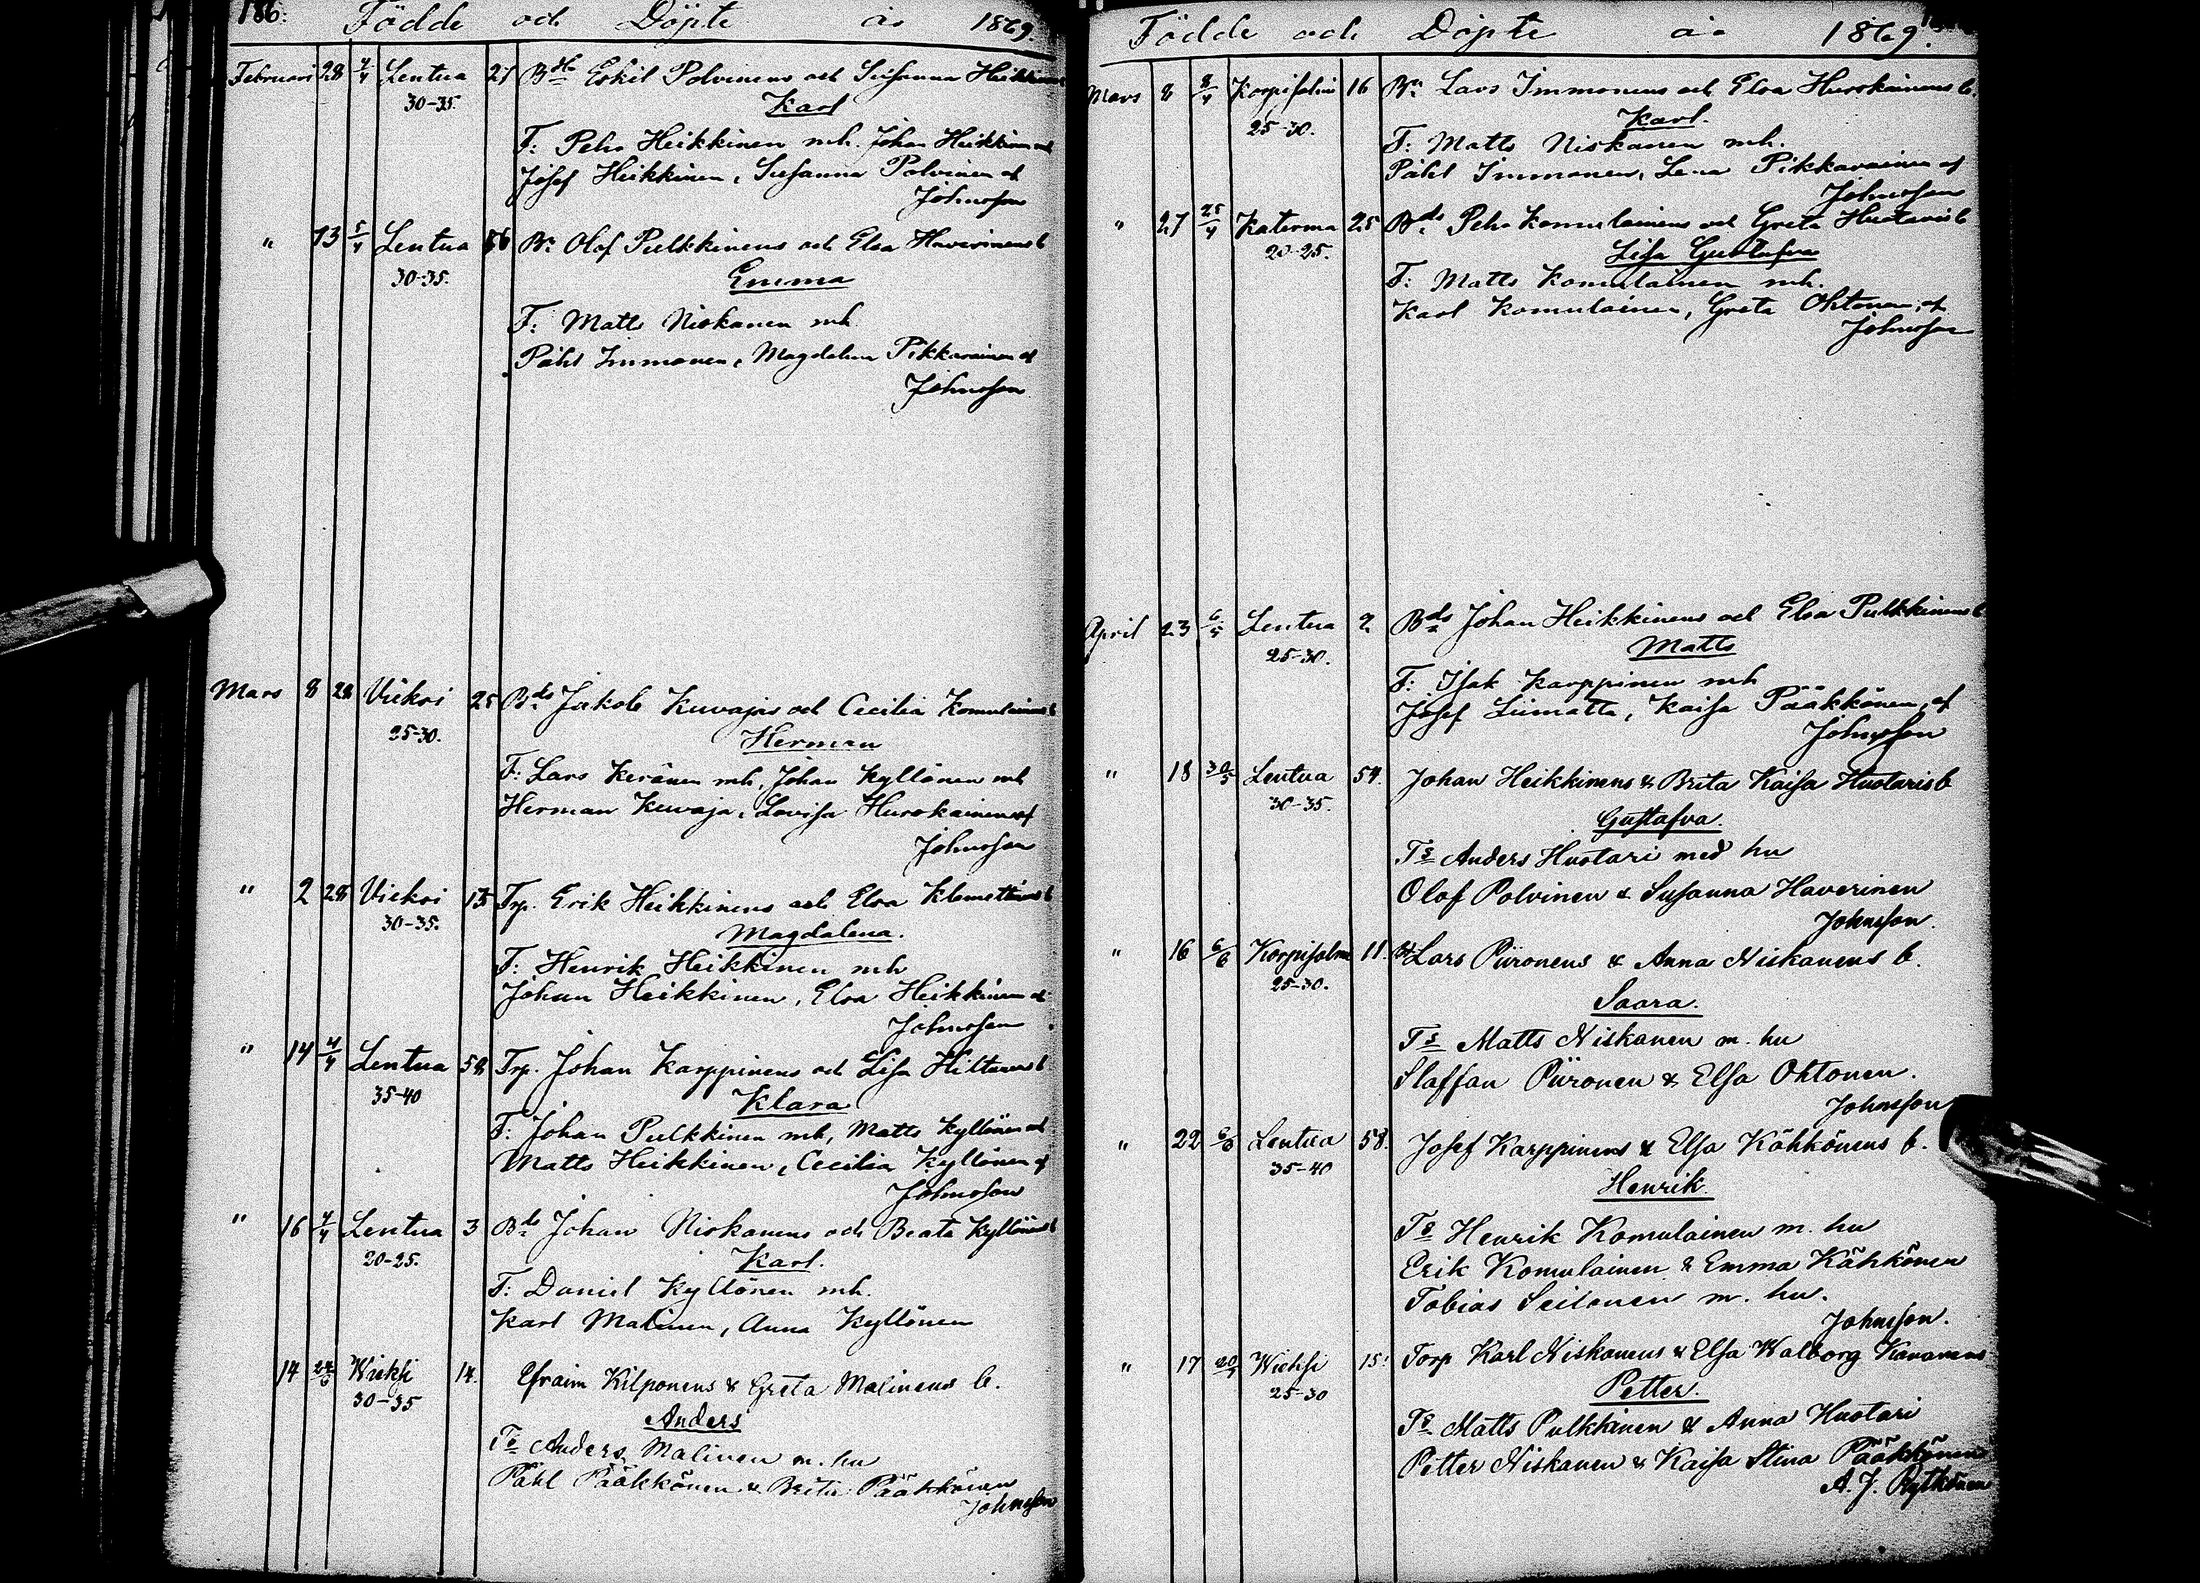 186.
Födde och Döpte år 1869.
Februari 28 4/4 Lentua 27 Bds Eskil Polvinens och Susanna Heikkinens
30-35. Karl
F: Pehr Heikkinen mh. Johan Heikkinen
Josef Heikkinen, Susanna Polvinen af
Johnsson
" 13 5/4 Lentua 56 Bn Olof Pulkkinens och Elsa Haverinens b
30-35. Emma
F: Matts Niskanen mh
Påhl Immonen, Magdalena Pikkarainen af
Johnsson
Mars 8 28 Vieksi 25 Bds Jakob Kuvajas och Cecilia Komulainens b
25-30. Herman
F: Lars Keränen mh, Johan Kyllönen mh
Herman Kuvaja, Lovisa Hurskainen af
Johnsson
" 2 28 Vieksi 15 Trp. Erik Heikkinens och Elsa Klemettinens b
30-35. Magdalena.
F: Henrik Heikkinen mh
Johan Heikkinen, Elsa Heikkinen af
Johnsson
" 14 4/4 Lentua 58 Trp. Johan Karppinens och Lisa Hiltunens b
35-40 Klara
F: Johan Pulkkinen mh, Matts Kyllönen mh
Matts Heikkinen, Cecilia Kyllönen af
Johnsson
" 16 4/4 Lentua 3 Bds Johan Niskanens och Beata Kyllönens b
20-25. Karl.
F: Daniel Kyllönen mh.
Karl Malinen, Anna Kyllönen
14 Wieksi 14. Efraim Kilponens & Greta Malinens b.
30-35 Anders
Fs Anders Malinen m. hu
Påhl Pääkkönen & Brita Pääkkönen
Johnsson
Födde och Döpte år 1869.
Mars 8 8/4 Korpisalmi 16 Bn Lars Immonens och Elsa Hurskainens b.
25-30. Karl.
F: Matts Niskanen mh.
Påhl Immonen, Lena Pikkarainen af
Johnsson
" 27 25/4 Katerma 25 Bds Pehr Komulainens och Greta Huotaris b
20-25. Lisa Gustafva
F: Matts Komulainen mh.
Karl Komulainen, Greta Ohtonen, af
Johnsson
April 23 6/5 Lentua 2 Bds Johan Heikkinens och Elsa Pulkkinens b
25-30. Matts
F: Isak Karppinen mh
Josef Liimatta, Kaisa Pääkkönen, af
Johnsson
" 18 30/5 Lentua 54. Johan Heikkinens & Brita Kaisa Huotaris b
30-35. Gustafva.
Fs Anders Huotari med hu
Olof Polvinen & Susanna Haverinen
Johnsson.
" 16 6/6 Korpisalmi 11. Lars Piironens & Anna Niskanens b.
25-30. Saara.
Fs Matts Niskanen m. hu
Staffan Piironen & Elsa Ohtonen.
Johnsson
" 22 6/6 Lentua 58. Josef Karppinens & Elsa Kähkönens b.
35-40 Henrik
Fs Henrik Komulainen m. hu
Erik Komulainen & Emma Kähkönen
Tobias Seilonen m. hu.
Johnsson.
" 17 Wieksi 15. Torp Karl Niskanens & Elsa Walborg Kananens
25-30 Petter.
Fs Matts Pulkkinen & Anna Huotari
Petter Niskanen & Kaisa Stina Pääkkönen
A. J. Rytkönen